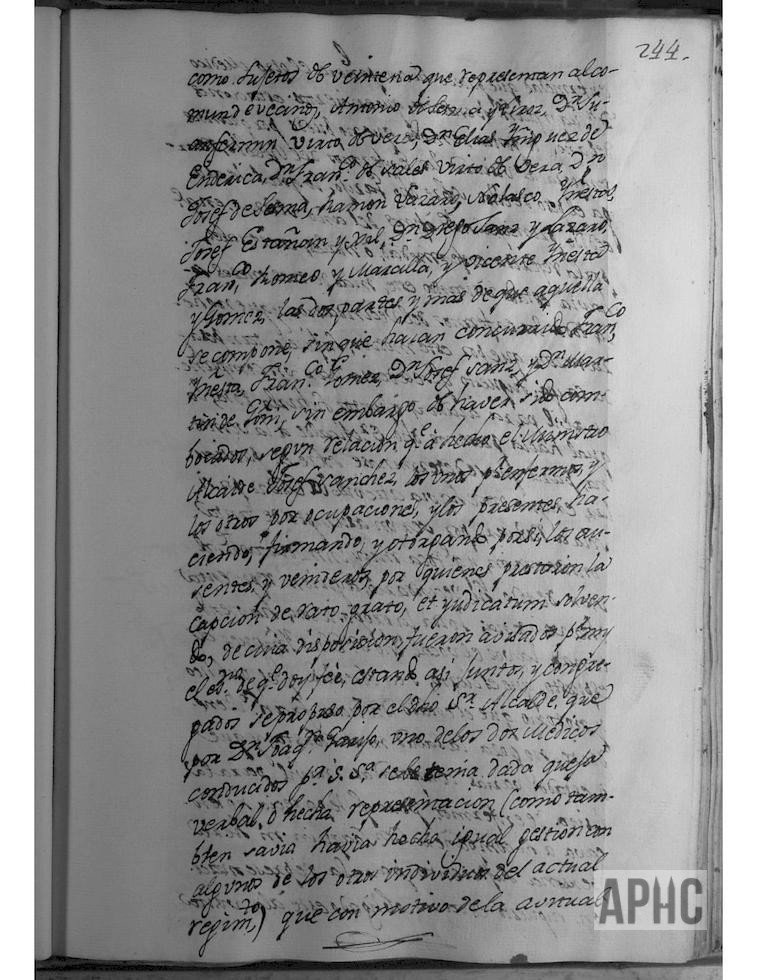 244.
como sujetos de veintena que representan al co-
mun de vecinos, Antonio de Lerma y Aroz, Dn Ju-
an fermin Virto de vera, Dn Elias Yñiguez de
Enderica, Dn Franco de Sales Virto de Vera, Dn
Josef de Lerma, Ramon Lazaro, Nolasco Yñesta,
Josef Estañan y Xil, Dn Diego Sanz y Lazaro,
Franco Romeo y Marcilla, y vicente Yñesta
y Gomez, las dos partes y mas de que aquella
se compone, sin que haian concurrido Franco
Yñesta, Franco Gomez, Dn Josef Sanz y Dn Mar-
tin de Goñi, sin embargo de haver sido com-
bocados, segun relacion qe a hecho el Ministro
Alcaide Josef Sanchez, los unos pr enfermos, y
los otros por ocupaciones, y los presentes, ha-
ciendo, firmando, y otorgando por si, los au-
sentes, y venideros, por quienes prestaron la
capcion de rato grato, et judicatum solven-
do, de cuia disposicion fueron avisados pr my
el esno de qe doy fee, estando asi juntos, y congre-
gados se propuso por el dho Sr Alcalde, que
por Dn Joaqn Garijo, uno delos dos Medicos
conducidos pr S. Sa se le tenia dada queja
verbal, ô hecha representacion (como tam-
bien savia havia hecho igual gestion con
algunos de los otros individuos del actual
regimto) que con motivo de la avitual
APHC